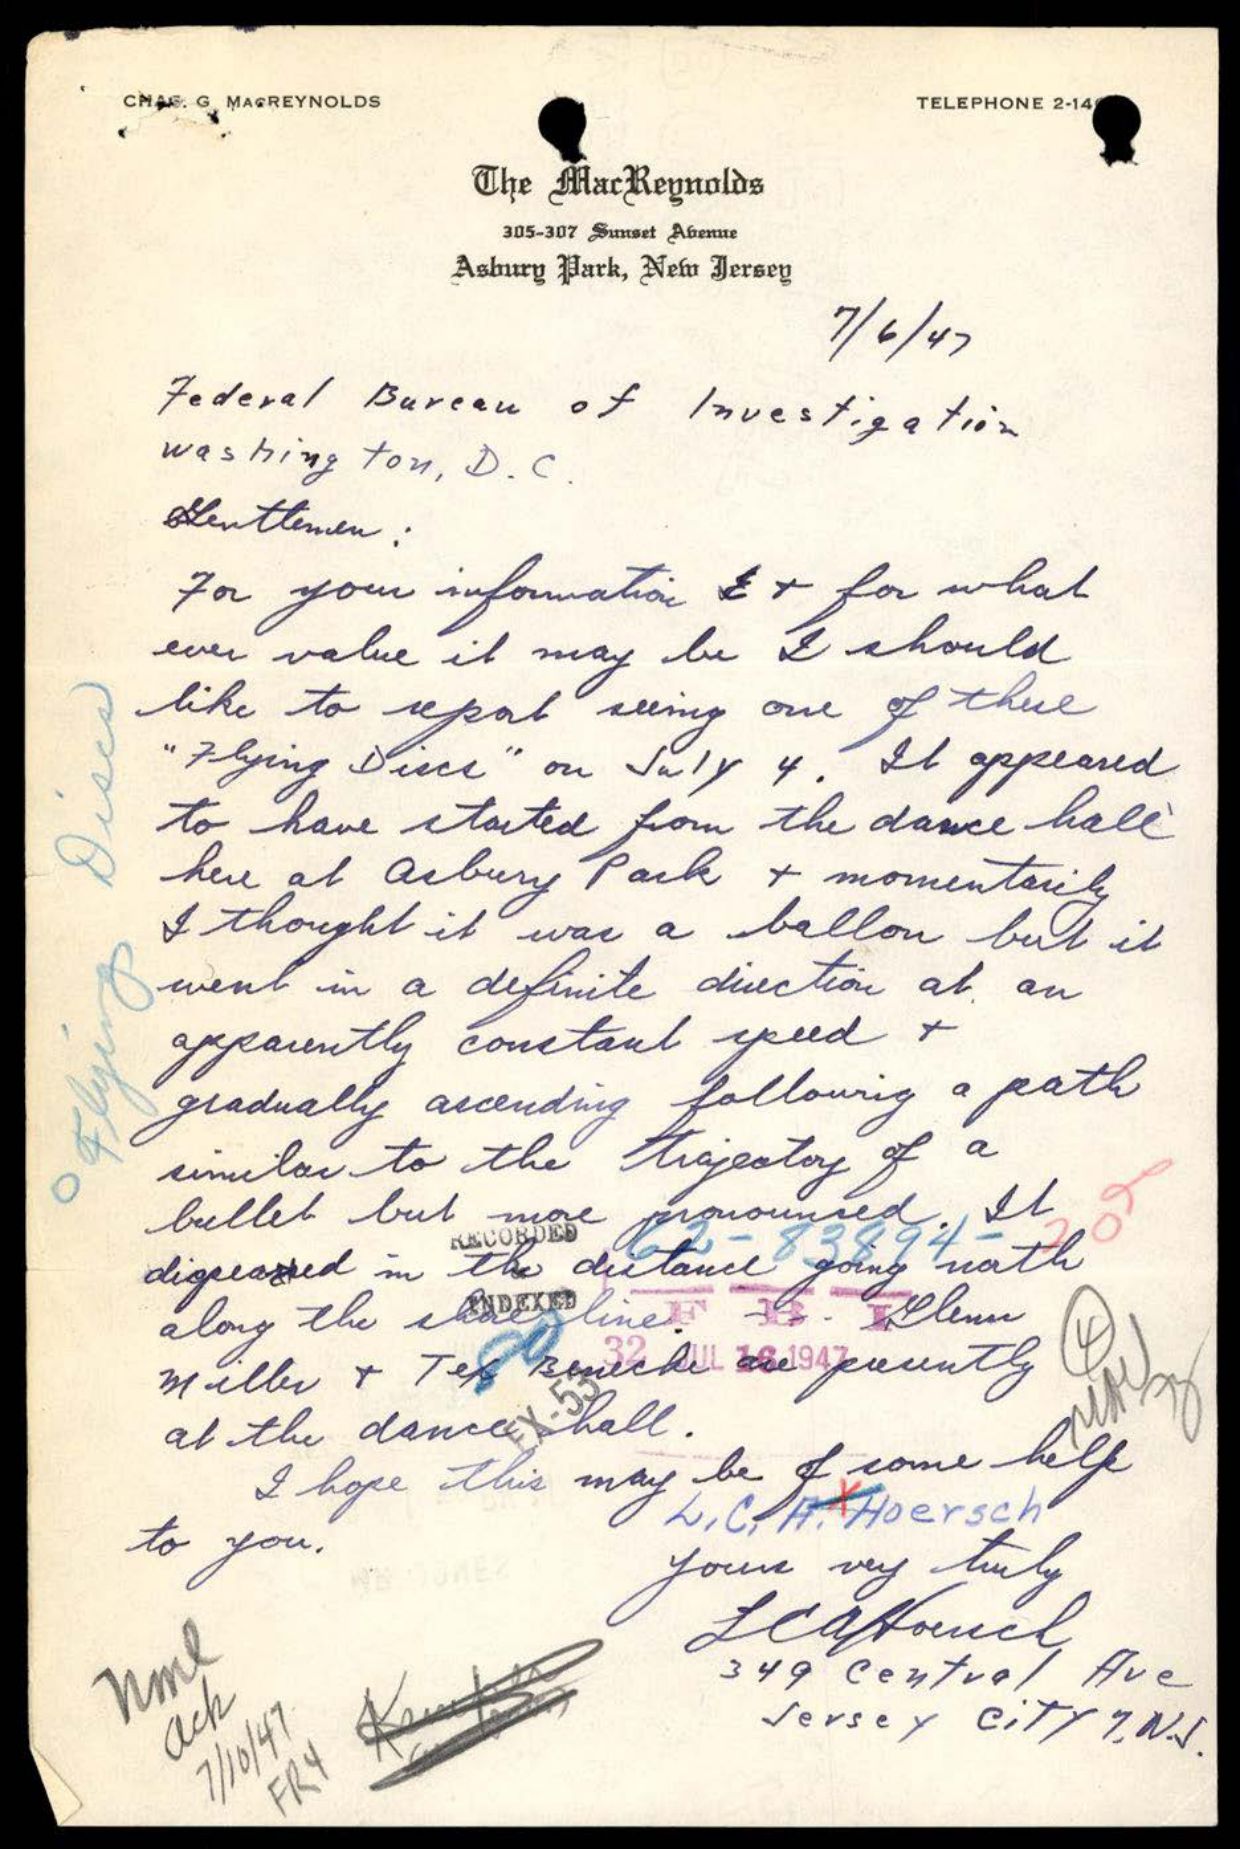 CHAS. G. MACREYNOLDS
TELEPHONE 2-14
The MacReynolds
305-307 Sunset Avenue
Asbury Park, New Jersey
7/6/47
Federal Bureau of Investigation
Washington, D.C.
Gentlemen:
For your information + for what
ever value it may be I should
like to report seeing one of these
"Flying Discs" on July 4. It appeared
to have started from the dance hall
here at Asbury Park + momentarily
I thought it was a ballon but it
went in a definite direction at an
apparently constant speed +
gradually ascending following a path
similar to the trajectory of a
bullet but more pronounced. It
disappeared in the distance going north
along the shore line. -- Glenn
Miller + Tex Beneche are presently
at the dance hall.
I hope this may be of some help
to you.
L.C.A. Hoersch
Yours very truly
LCA Hoersch
349 Central Ave
Jersey City 7, N.J.
Flying Discs
RECORDED
&
INDEXED
62-83894-205
F B I
32 JUL 16 1947
80
EX-53
4
ack
7/10/47